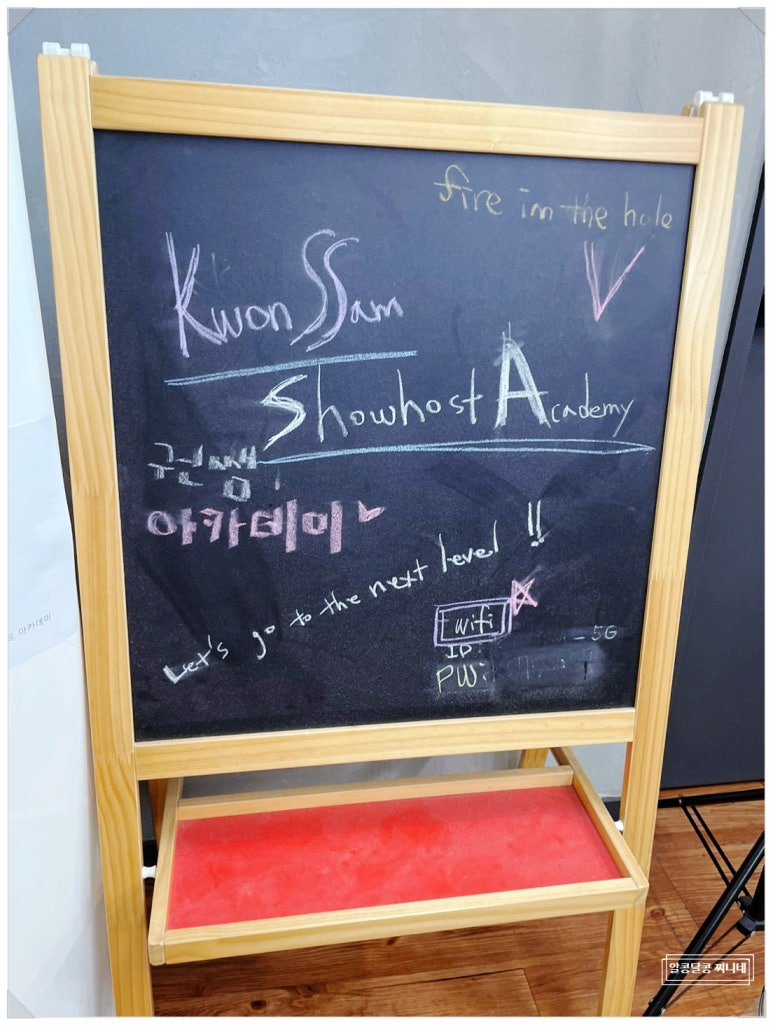 fire in the hole
Kwon SSam
Showhost Academy
권쌤
아카데미
Let's go to the next level !!
wifi
ID:
_5G
PW:
트 아카데미
알콩달콩 찌니네